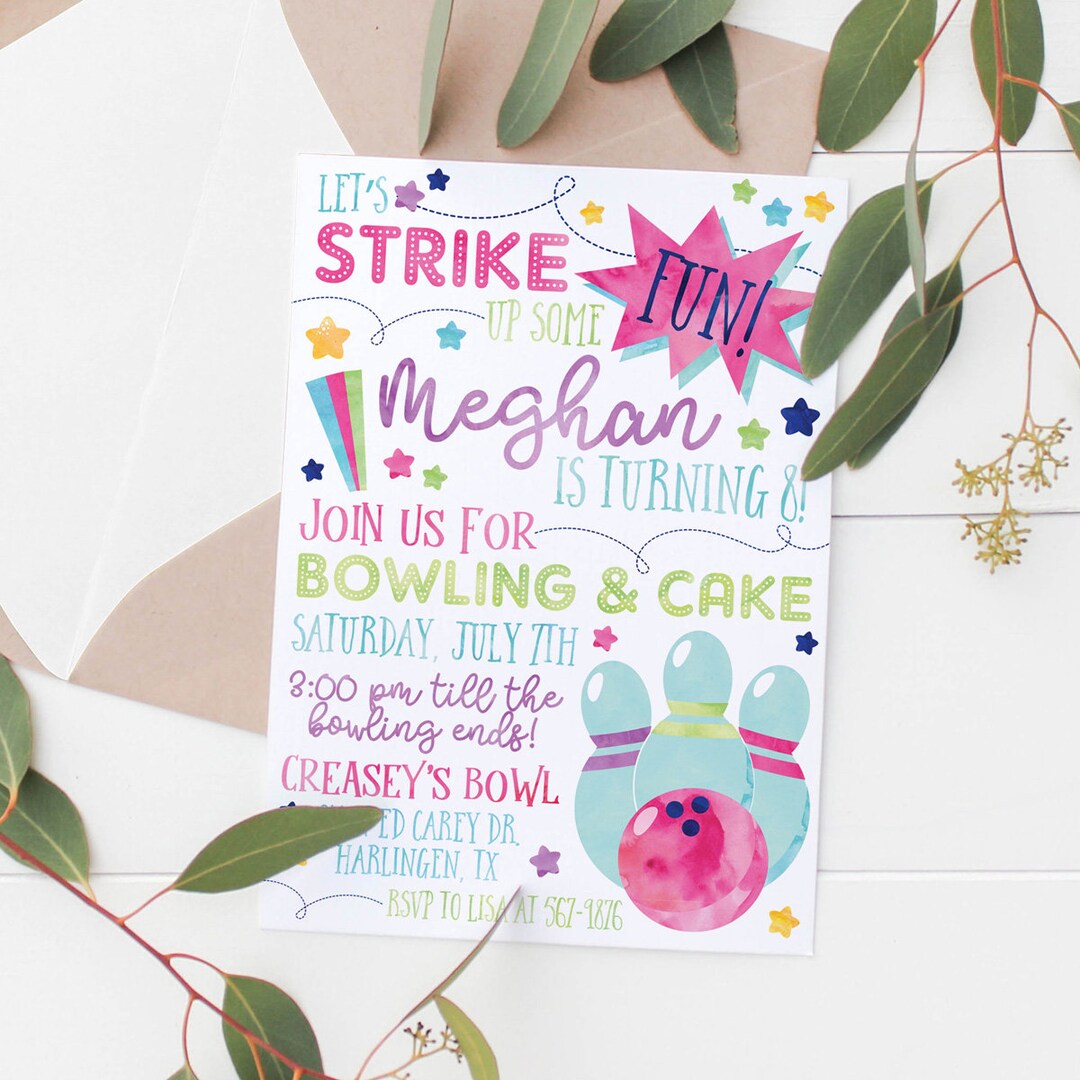 LET'S
STRIKE
UP SOME
FUN!
Meghan
IS TURNING 8!
JOIN US FOR
BOWLING & CAKE
SATURDAY, JULY 7TH
3:00 pm till the
bowling ends!
CREASEY'S BOWL
ED CAREY DR.
HARLINGEN, TX
RSVP TO LISA AT 567-9876